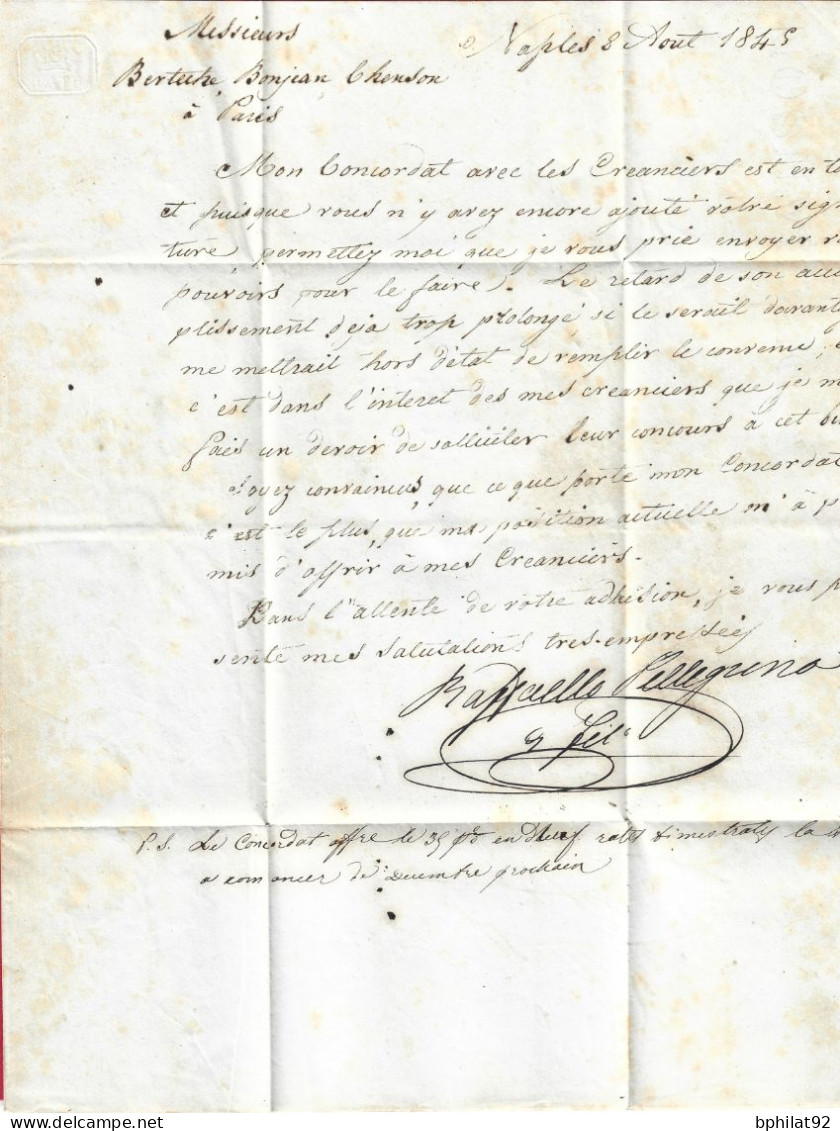 Messieurs
Naples 8 Aout 1845
Berteche Bonjean Chenson
à Paris
Mon Concordat avec les Creanciers est en
et puisque vous n'y avez encore ajouté votre sign
ture, permettez moi que je vous prie envoyer
pouvoirs pour le faire. Le retard de son acc
plissement deja trop prolongé, si le serait davant
me mettrait hors d'état de remplir le convenu,
c'est dans l'interet des mes creanciers que je m
fais un devoir de solliciter leur concours à cet bu
Soyez convaincus, que ce que porte mon Concordat
c'est le plus, que ma position actuelle m'à p
mis d'offrir à mes Creanciers.
Dans l'attente de votre adhésion, je vous p
sente mes salutations tres-empressées
Raffaello Pellegrino
& fils
P.S. Le Concordat offre le 35 pº en rates la
a comancer de Decembre prochain
bphilat92